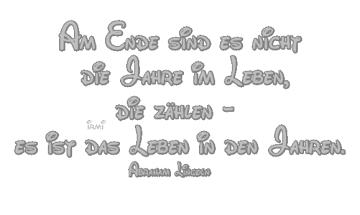 Am Ende sind es nicht
die Jahre im Leben,
die zählen -
irmi
es ist das Leben in den Jahren.
Abraham Lincoln